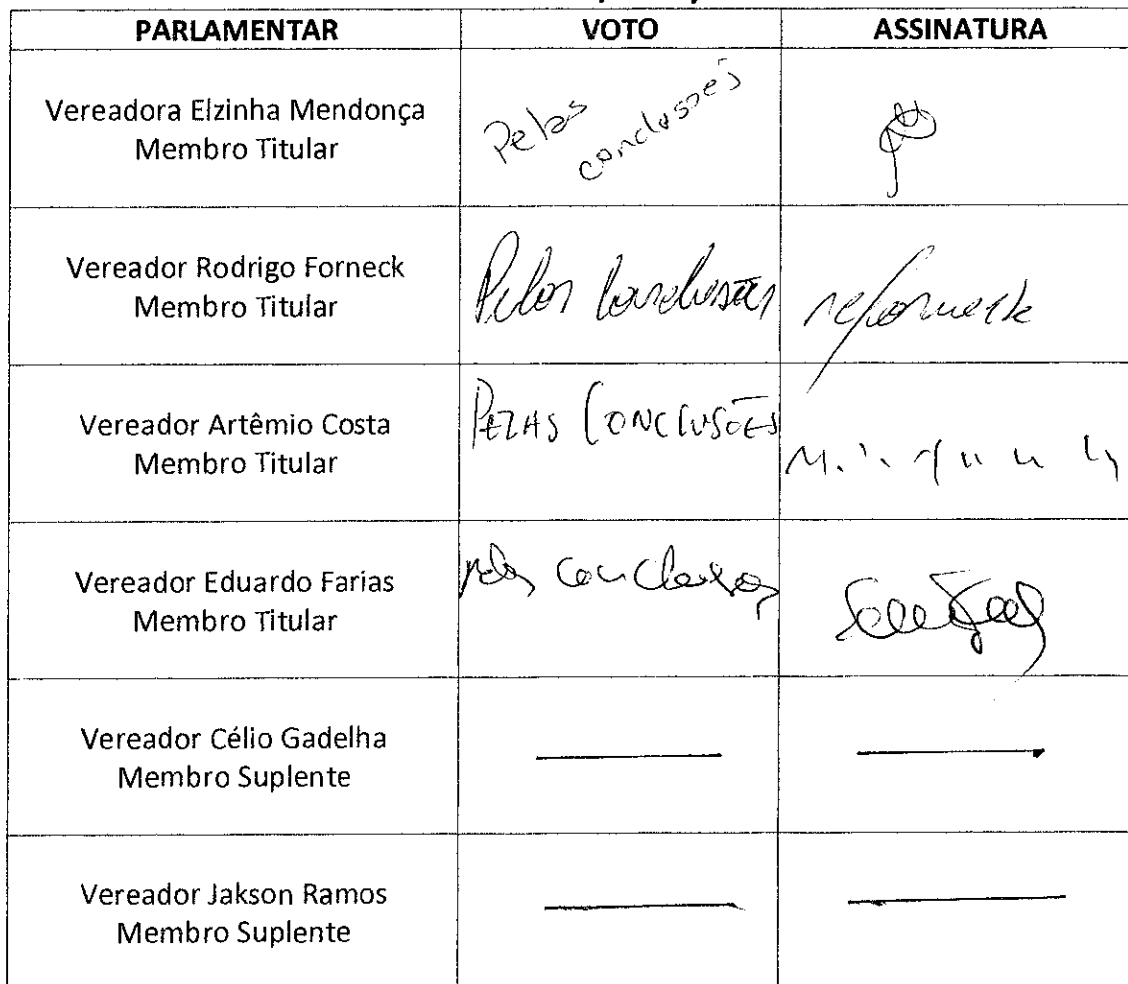 PARLAMENTAR VOTO ASSINATURA
Vereadora Elzinha Mendonça
Membro Titular
Pelas
conclusões
Vereador Rodrigo Forneck
Membro Titular
Pelas Conclusões
rsforneck
Vereador Artêmio Costa
Membro Titular
PELAS CONCLUSÕES
Vereador Eduardo Farias
Membro Titular
pelas conclusões
Vereador Célio Gadelha
Membro Suplente
Vereador Jakson Ramos
Membro Suplente